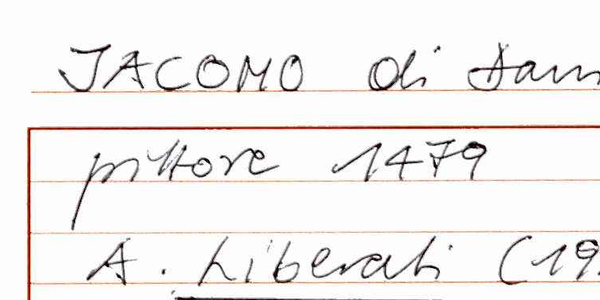 JACOMO di
pittore 1479
A. Liberati (19